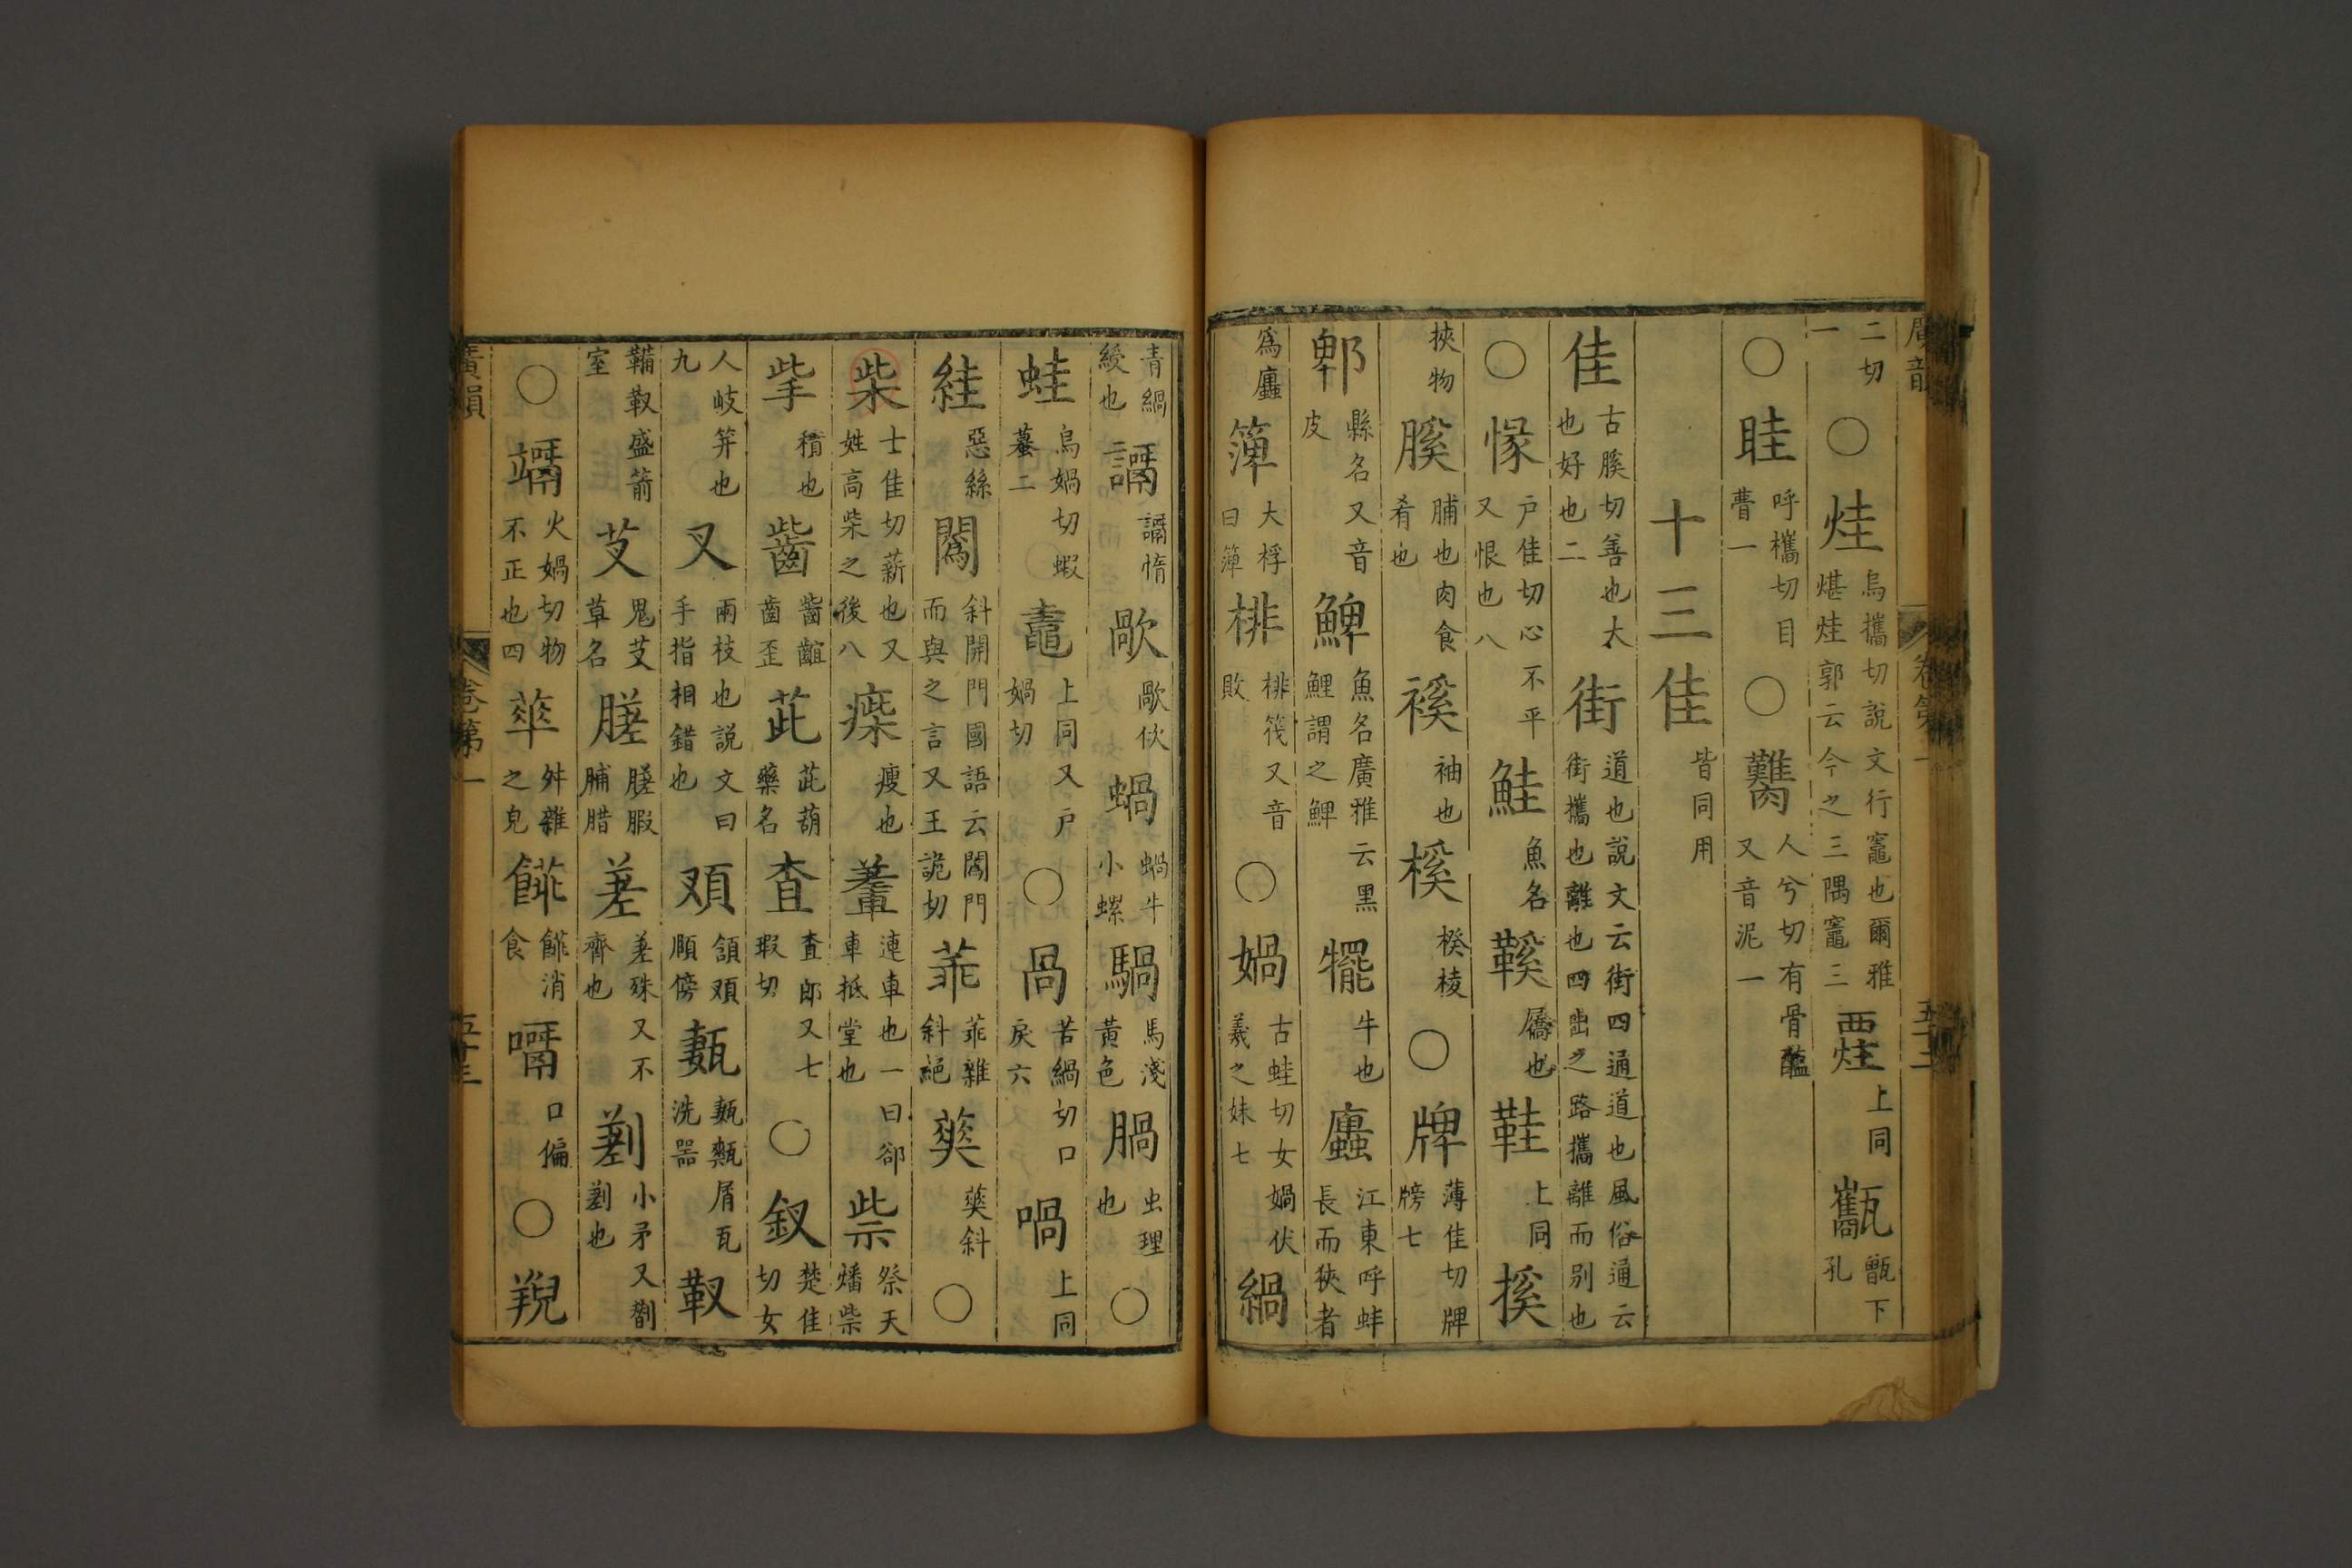 二切一〇烓烏攜切說文行竈也爾雅煁烓郭云今之三隅竈三 上同 甑下孔
〇眭呼攜切目瞢一〇臡人兮切有骨醢又音泥一
十三佳皆同用
佳古膎切善也大也好也二街道也說文云街四通道也風俗通云街攜也離也四出之路攜離而別也
〇㥟戶佳切心不平又恨也八鮭魚名鞵屩也鞋上同㨙
挾物膎脯也肉食肴也䙎袖也榽榽棱〇牌薄佳切牌牓七
郫縣名又音皮䱝魚名廣雅云黑鯉謂之䱝犤牛也蠯江東呼蚌長而狹者
為蠯簰大桴曰簰棑棑筏又音敗〇媧古蛙切女媧伏羲之妹七緺
青緺綬也䜏䜏惰𣣻蝸蝸牛小螺騧馬淺黃色腡虫理也〇
蛙烏媧切蝦蟇二鼃上同又戶媧切〇咼苦緺切口戾六喎上同
絓惡絲䦱斜開門國語云䦱門而與之言又王詭切𦮃𦮃雜斜絕䔢䔢斜〇
柴士佳切薪也又姓高柴之後八㾹瘦也𨍋連車也一曰卻車抵堂也祡祭天燔祡
㧗積也齜齜齟齒歪茈茈葫藥名查查郎又七瑕切〇釵楚佳切女
人岐笄也九叉兩枝也說文曰手指相錯也頄傍屑瓦洗器靫
鞴靫盛箭室芆鬼芆草名𦞤脯腊差差殊又不齊也小矛又劄也
〇竵火媧切物不正也四舛雜之皃消食口偏〇𧣾
廣韻 卷第一 五十三